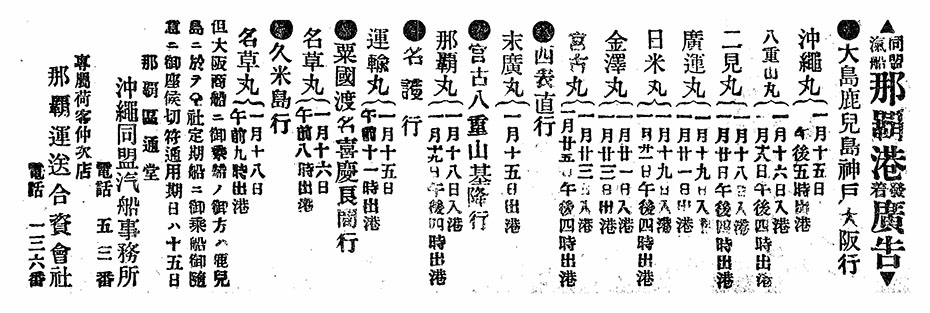 ▲同盟汽船那覇港発着廣告▼
●大島鹿兒島神戸大阪行
沖繩丸 一月十五日 午後五時出港
八重山丸 一月十六日入港 一月 日午後四時出港
二見丸 一月十 日入港 一月 日午後四時出港
廣運丸 一月 日入港 一月 日出港
日米丸 一月十九日入港 一月 日午後四時出港
金澤丸 一月廿一日入港 一月廿三日午後四時出港
宮古丸 一月廿三日入港 一月廿五日午後四時出港
●西表直行
末廣丸 一月十五日出港
●宮古八重山基隆行
那覇丸 一月十八日入港 一月 日午後四時出港
●名護行
運輸丸 一月十五日 午前十一時出港
●粟國渡名喜慶良間行
名草丸 一月十六日 午前八時出港
●久米島行
名草丸 一月十八日 午前九時出港
但大阪商船ニ御乘船ノ御方ハ鹿兒
島ニ於テ仝社定期船ニ御乘船御隨
意ニ御座候切符通用期日ハ十五日
那覇區通堂
沖繩同盟汽船事務所
電話 五三番
專屬荷客仲次店
那覇運送合資會社
電話 一三六番